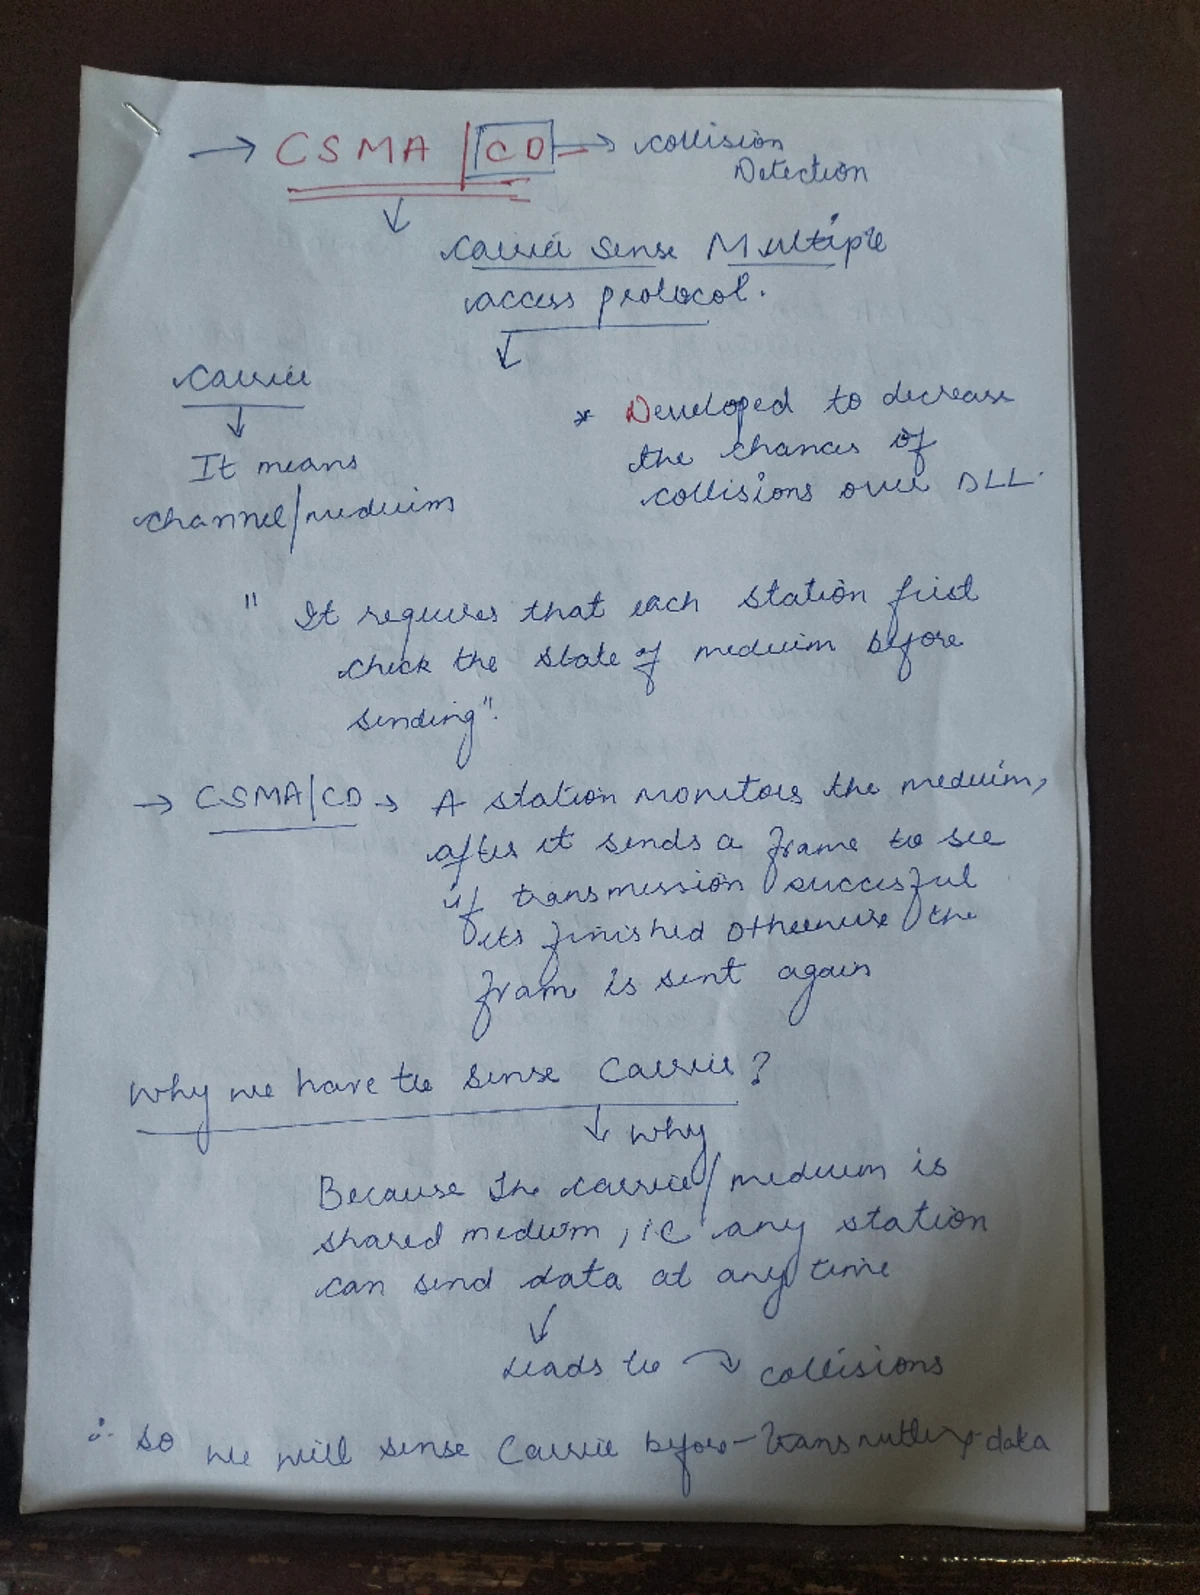 → CSMA/CD → collision
Detection
↓
Carrier Sense Multiple
access protocol.
↓
Carrier
↓
It means
channel/meduim
* Developed to decrease
the chances of
collisions over DLL.
" It requires that each station first
check the state of meduim before
sending".
→ CSMA/CD → A station monitors the meduim,
after it sends a frame to see
if transmission succesful
its finished otherwise the
fram is sent again
Why we have to sense Carrier?
↓ why
Because the carrier/meduim is
shared meduim, ie any station
can send data at any time
↓
Leads to → collisions
∴ so we will sense Carrier before transmitting data